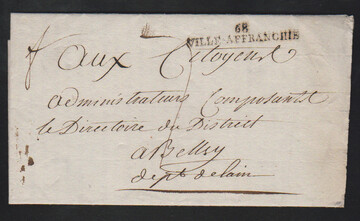 68
VILLE-AFFRANCHIE
aux Citoyens
administrateurs Composant
le Directoire du District
a Belley
dept de lain